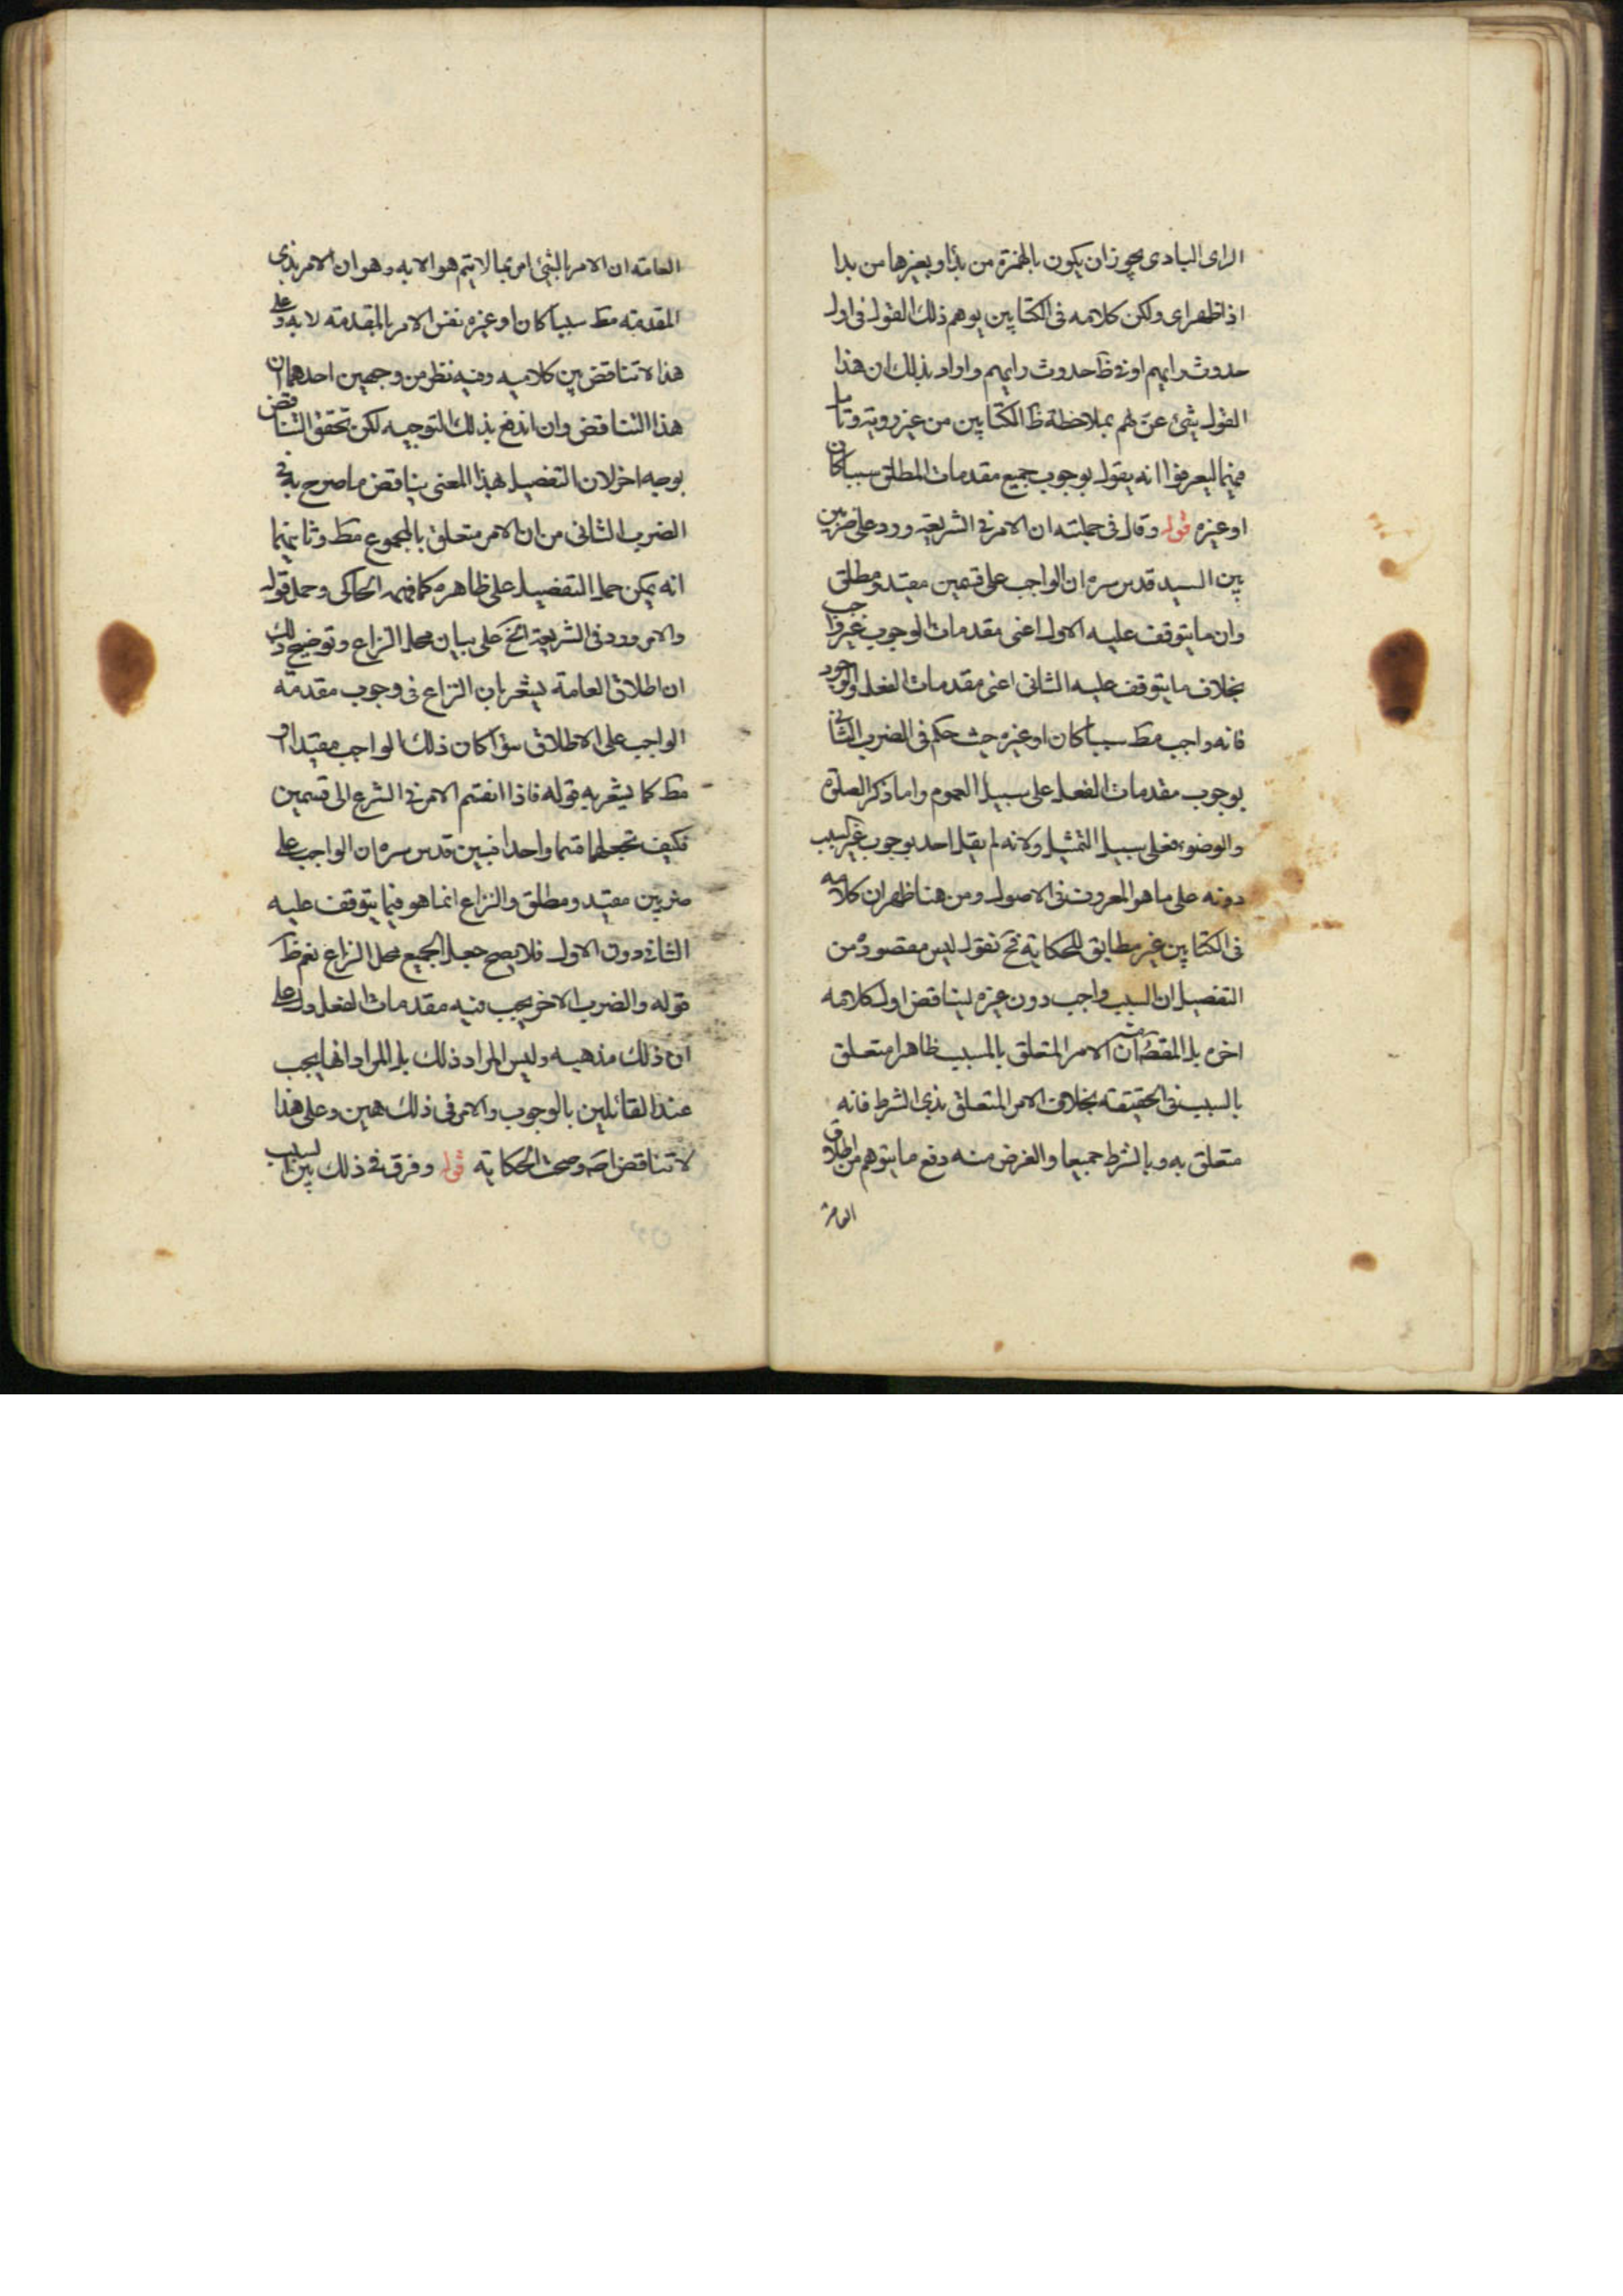 الراى البادى يجوز ان يكون بالهمزة من بدأ وبغيرها من بدا
اذا ظهر اى ولكن كلامه فى الكتابين يوهم ذلك القول فى اول
حدوث رايهم او فى ظ حدوث رايهم واراد بذلك ان هذا
القول شئ عن لهم بملاحظة ظ الكتابين من غير روية وتامل
فيهما ليعرفوا انه يقول بوجوب جميع مقدمات المطلق سببا كان
او غيره قوله وقال فى جملته ان الامر فى الشريعة ورد على ضربين
بين السيد قدس سره ان الواجب على قسمين مقيد ومطلق
وان ما يتوقف عليه الاول اعنى مقدمات الوجوب غير واجب
بخلاف ما يتوقف عليه الثانى اعنى مقدمات الفعل والوجود
فانه واجب مط سببا كان او غيره حيث حكم فى الضرب الثانى
بوجوب مقدمات الفعل على سبيل العموم واما ذكر الصلوة
والوضوء فعلى سبيل التمثيل ولانه لم يقل احد بوجوب غير السبب
دونه على ما هو المعروف فى الاصول ومن هنا ظهر ان كلامه
فى الكتابين غير مطابق للحكاية فح نقول ليس مقصوده من
التفصيل ان السبب واجب دون غيره ليناقض اول كلامه
اخره بل المقصود منه ان الامر المتعلق بالمسبب ظاهرا متعلق
بالسبب فى الحقيقة بخلاف الامر المتعلق بذى الشرط فانه
متعلق به وبالشرط جميعا والغرض منه دفع ما يتوهم من اطلاق
العامة
العامة ان الامر بالشئ امر بما لا يتم هو الا به وهو ان الامر بذى
المقدمة مط سببا كان او غيره نفس الامر بالمقدمة لا به وعلى
هذا لا تناقض بين كلاميه وفيه نظر من وجهين احدهما ان
هذا التناقض وان اندفع بذلك التوجيه لكن تحقق التناقض
بوجه اخر لان التفصيل بهذا المعنى يناقض ما صرح به فى
الضرب الثانى من ان الامر متعلق بالمجموع مط وثانيهما
انه يمكن حمل التفصيل على ظاهره كما فهمه الحاكى وحمل قوله
والامر ورد فى الشريعة الخ على بيان محل النزاع وتوضيح ذلك
ان اطلاق العامة يشعر بان النزاع فى وجوب مقدمة
الواجب على الاطلاق سواء كان ذلك الواجب مقيدا او
مط كما يشعر به قوله فاذا انقسم الامر فى الشرع الى قسمين
فكيف نجعلهما قسما واحدا فبين قدس سره ان الواجب على
ضربين مقيد ومطلق والنزاع انما هو فيما يتوقف عليه
الثانى دون الاول فلا يصح جعل الجميع محل النزاع نعم ظ
قوله والضرب الاخر يجب فيه مقدمات الفعل دل على
ان ذلك مذهبه وليس المراد ذلك بل المراد انها يجب
عند القائلين بالوجوب والامر فى ذلك هين وعلى هذا
لا تناقض اصه وصحت الحكاية قوله وفرق فى ذلك بين السبب